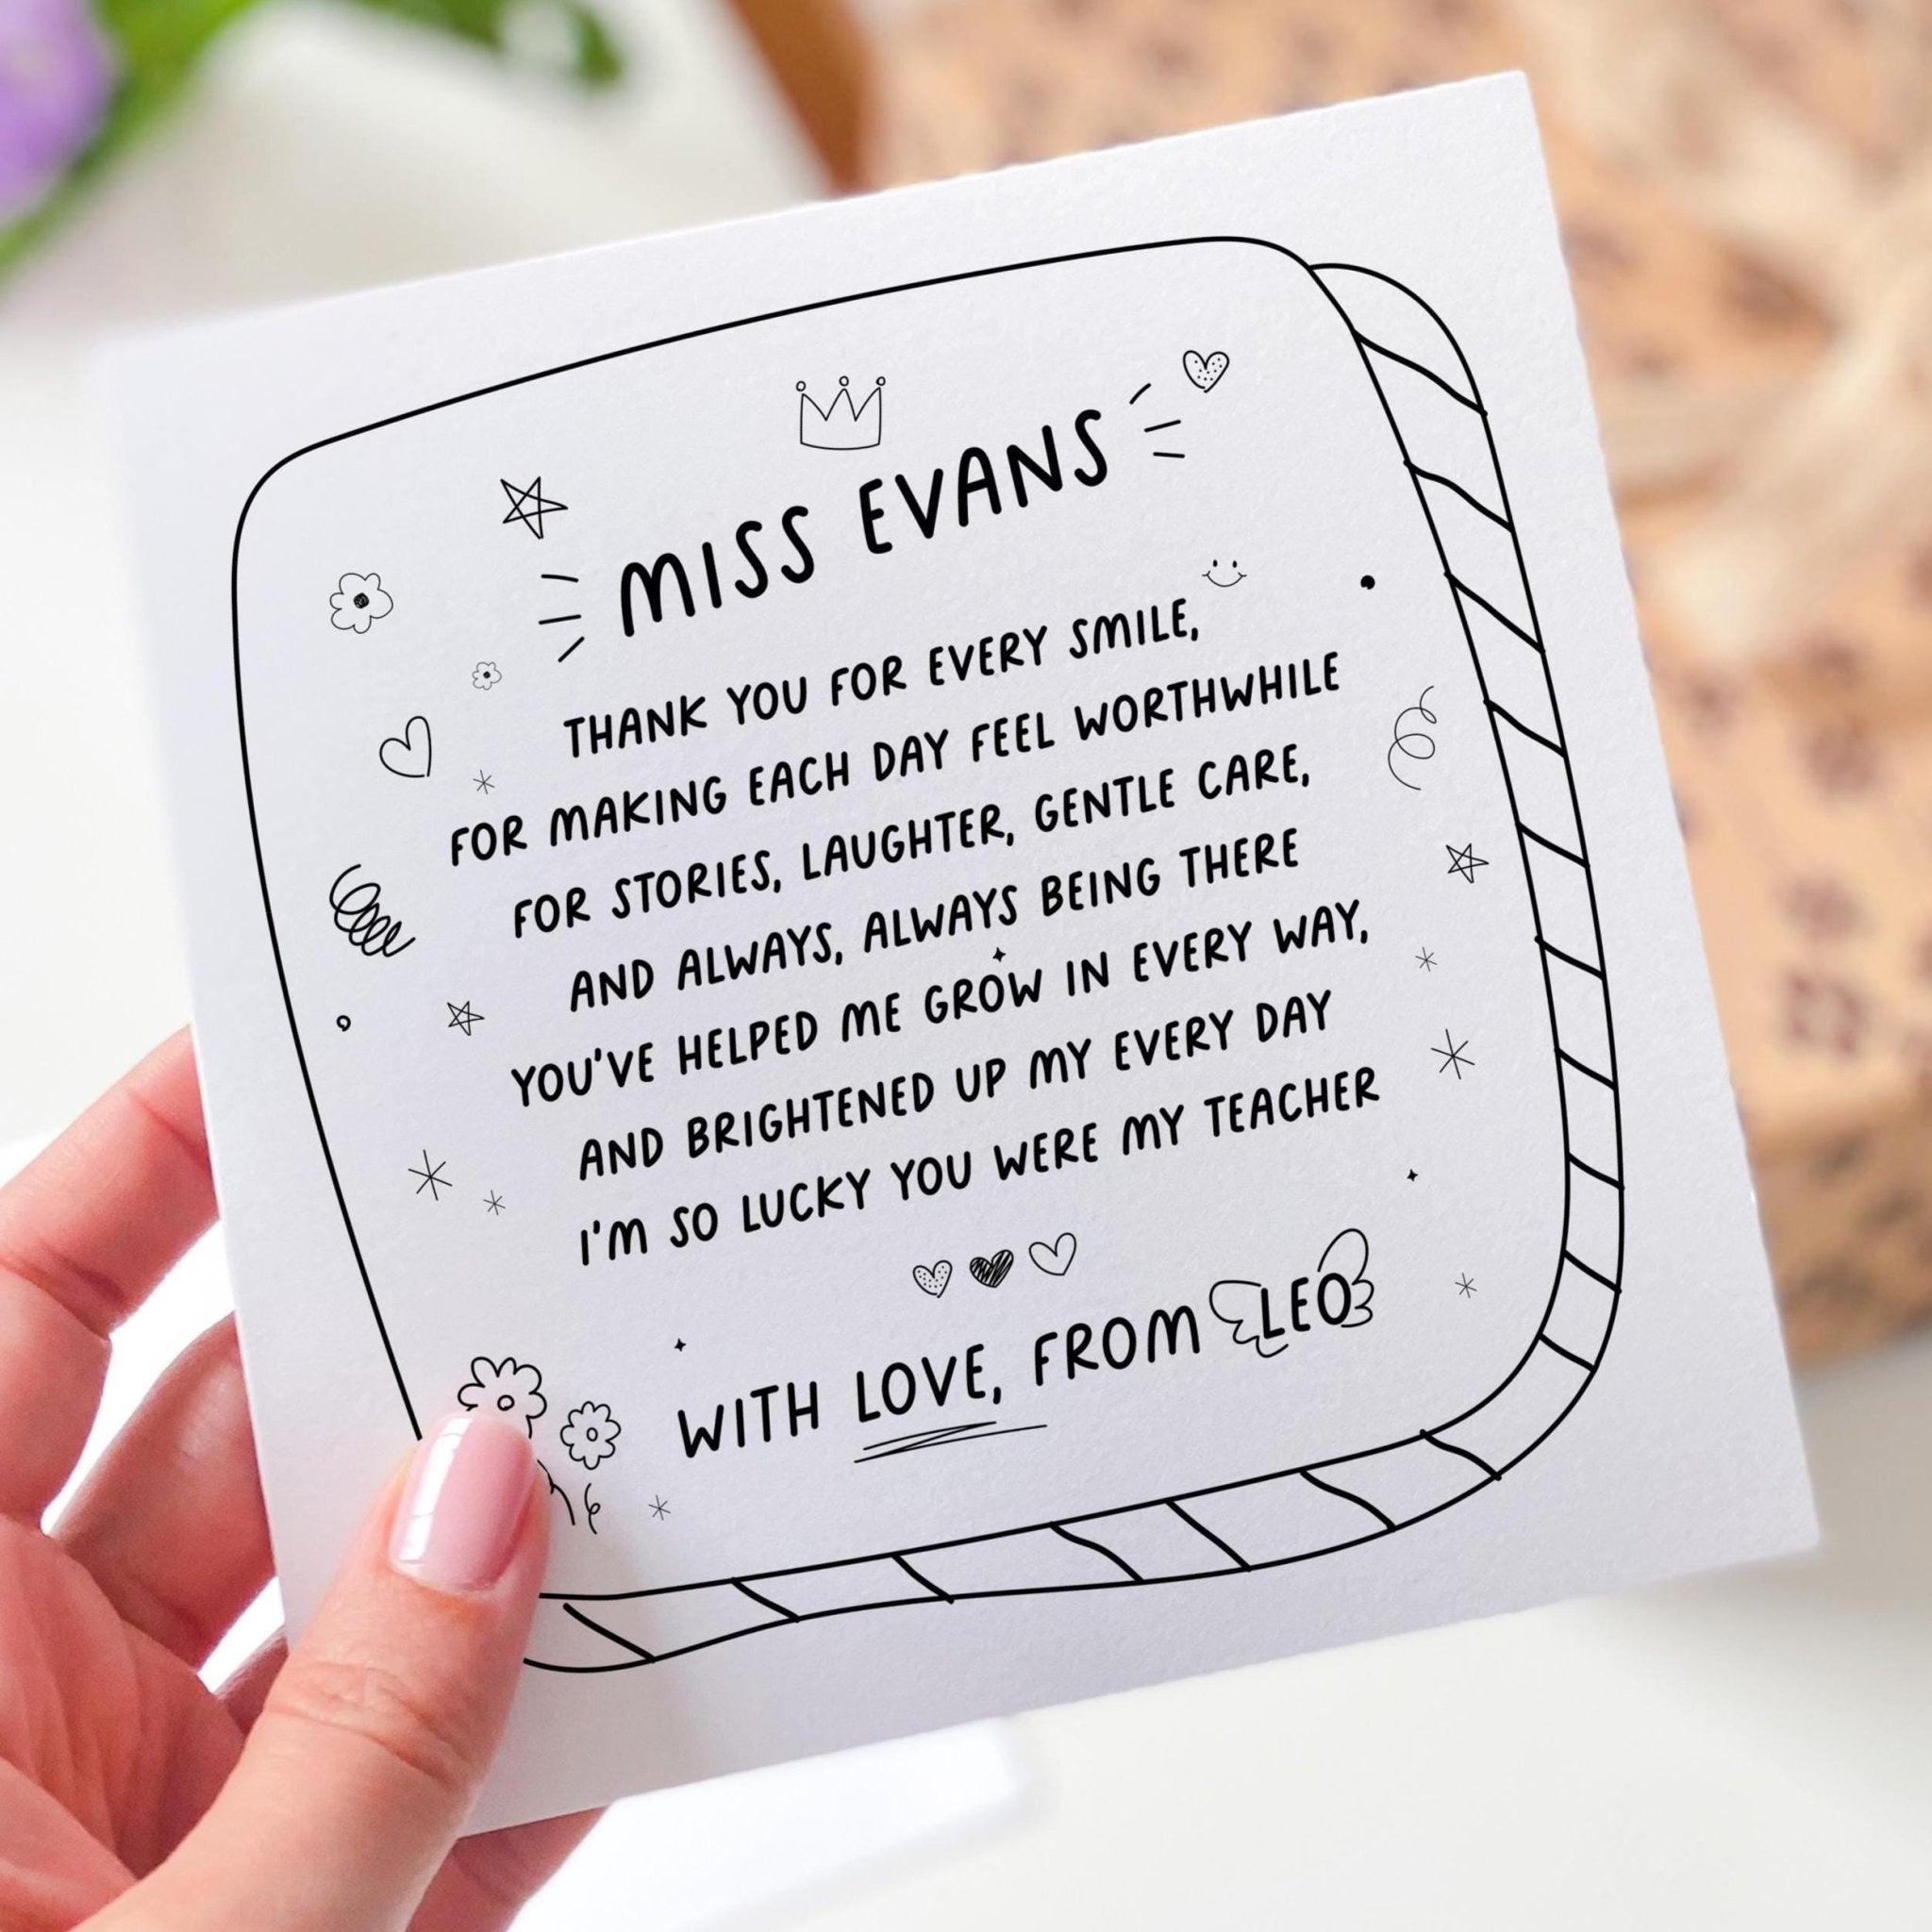 MISS EVANS
THANK YOU FOR EVERY SMILE,
FOR MAKING EACH DAY FEEL WORTHWHILE
FOR STORIES, LAUGHTER, GENTLE CARE,
AND ALWAYS, ALWAYS BEING THERE
YOU'VE HELPED ME GROW IN EVERY WAY,
AND BRIGHTENED UP MY EVERY DAY
I'M SO LUCKY YOU WERE MY TEACHER
WITH LOVE, FROM LEO